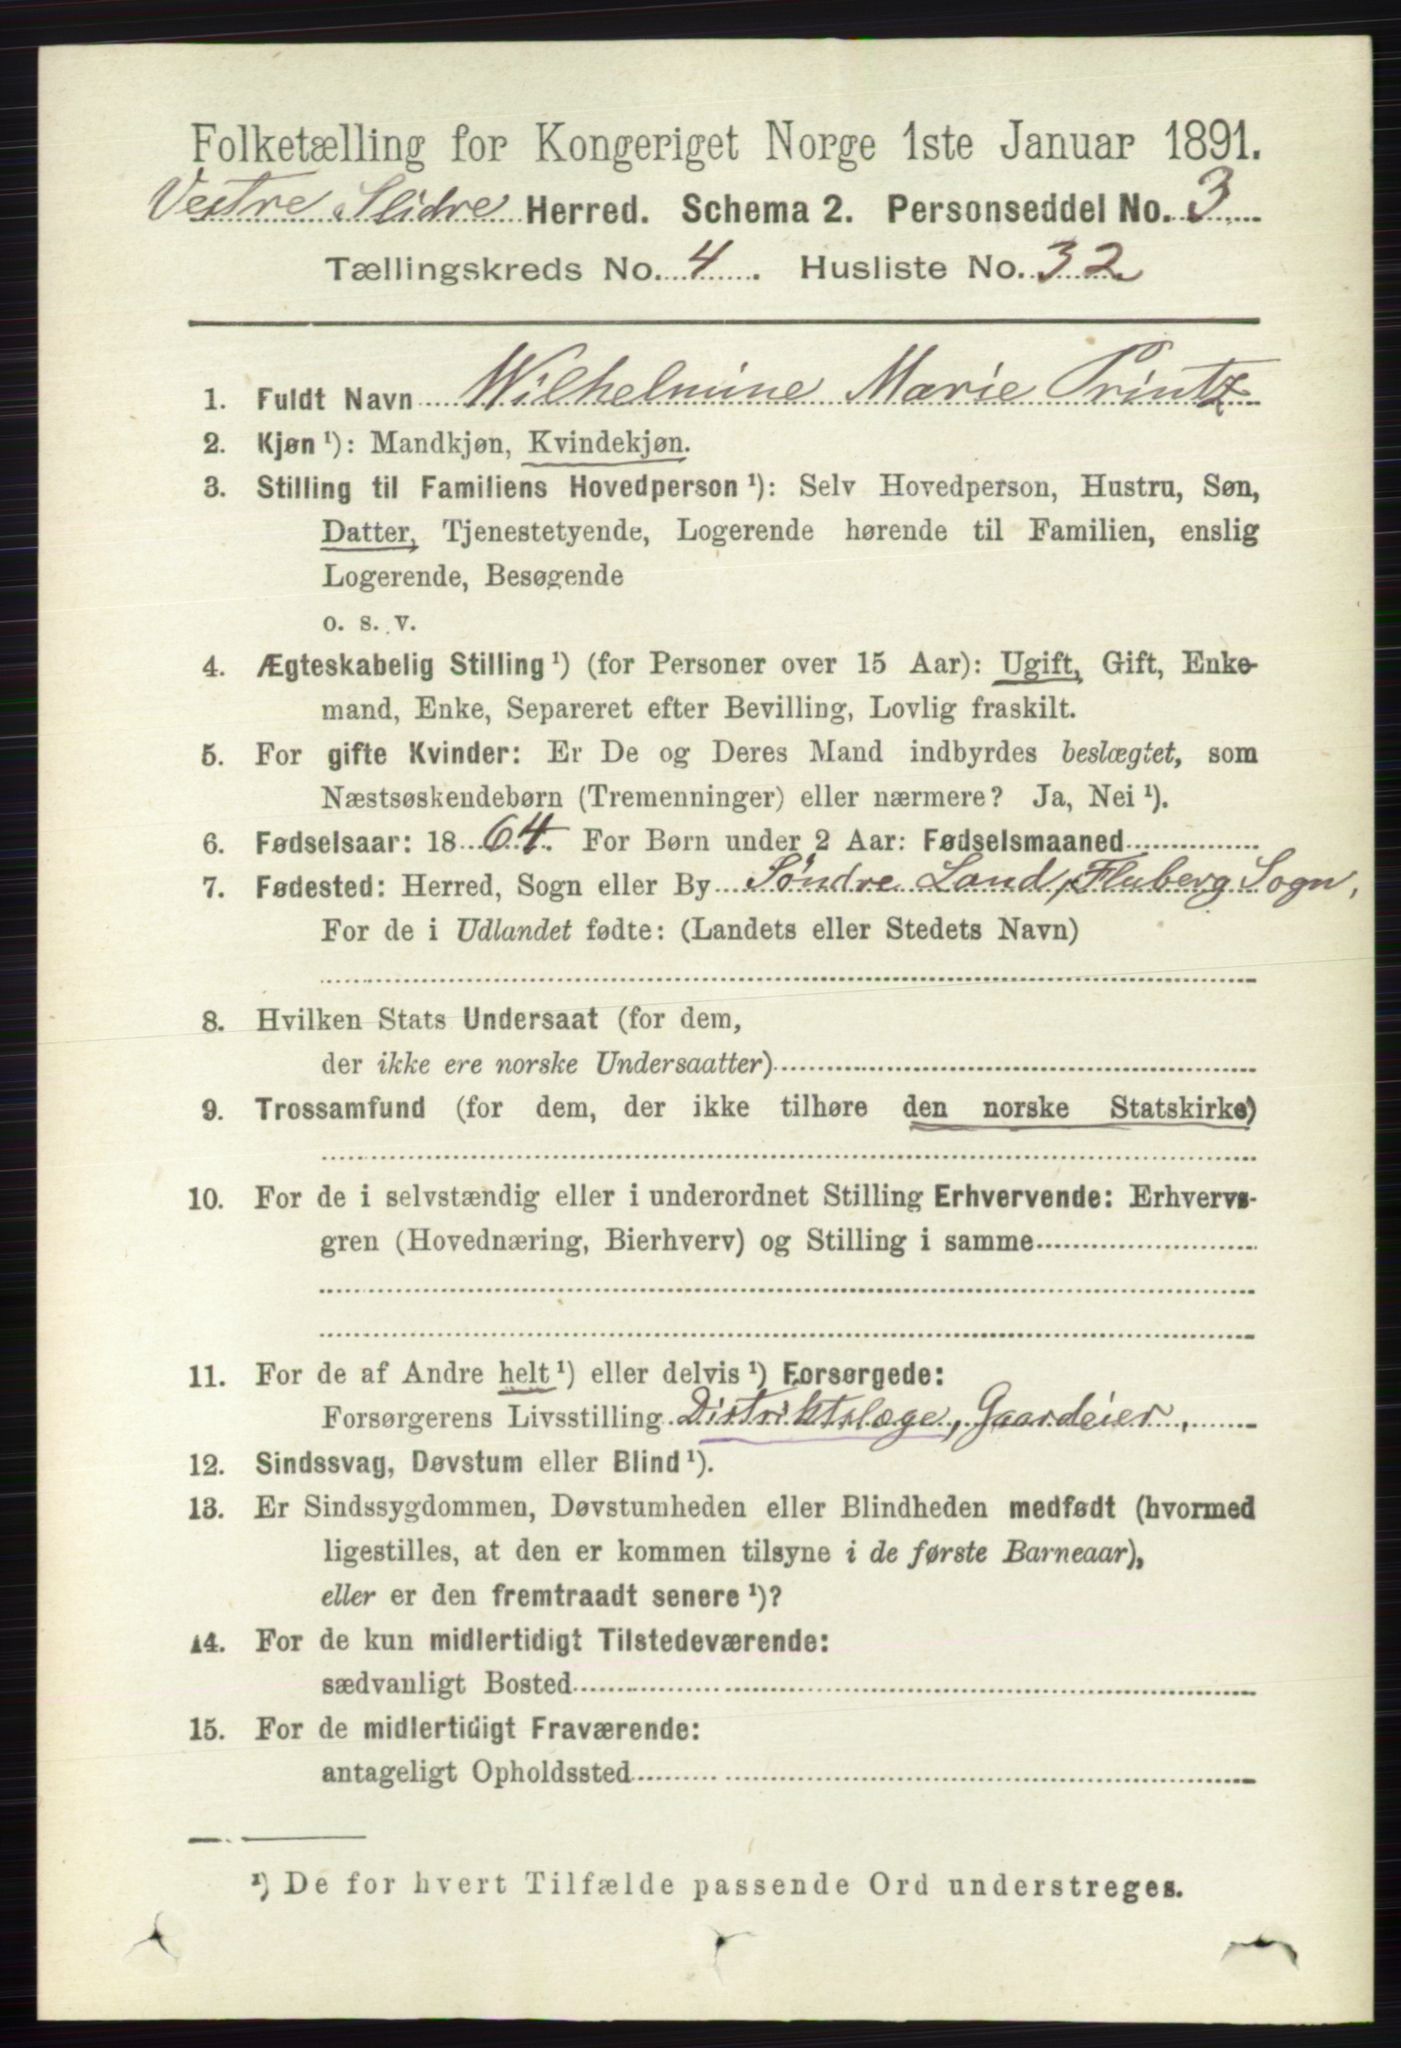 Folketælling for Kongeriget Norge 1ste Januar 1891.
Vestre Slidre Herred. Schema 2. Personseddel No. 3
Tællingskreds No. 4. Husliste No. 32
1. Fuldt Navn Wilhelmine Marie Printz
2. Kjøn ¹): Mandkjøn, Kvindekjøn.
3. Stilling til Familiens Hovedperson ¹): Selv Hovedperson, Hustru, Søn,
Datter, Tjenestetyende, Logerende hørende til Familien, enslig
Logerende, Besøgende
o. s. v.
4. Ægteskabelig Stilling ¹) (for Personer over 15 Aar): Ugift, Gift, Enke-
mand, Enke, Separeret efter Bevilling, Lovlig fraskilt.
5. For gifte Kvinder: Er De og Deres Mand indbyrdes beslægtet, som
Næstsøskendebørn (Tremenninger) eller nærmere? Ja, Nei ¹).
6. Fødselsaar: 1864. For Børn under 2 Aar: Fødselsmaaned
7. Fødested: Herred, Sogn eller By Søndre Land, Fluberg Sogn,
For de i Udlandet fødte: (Landets eller Stedets Navn)
8. Hvilken Stats Undersaat (for dem,
der ikke ere norske Undersaatter)
9. Trossamfund (for dem, der ikke tilhøre den norske Statskirke)
10. For de i selvstændig eller i underordnet Stilling Erhvervende: Erhvervs-
gren (Hovednæring, Bierhverv) og Stilling i samme
11. For de af Andre helt ¹) eller delvis ¹) Forsørgede:
Forsørgerens Livsstilling Distriktslæge, Gaardeier,
12. Sindssvag, Døvstum eller Blind ¹).
13. Er Sindssygdommen, Døvstumheden eller Blindheden medfødt (hvormed
ligestilles, at den er kommen tilsyne i de første Barneaar),
eller er den fremtraadt senere ¹)?
14. For de kun midlertidigt Tilstedeværende:
sædvanligt Bosted
15. For de midlertidigt Fraværende:
antageligt Opholdssted
¹) De for hvert Tilfælde passende Ord understreges.